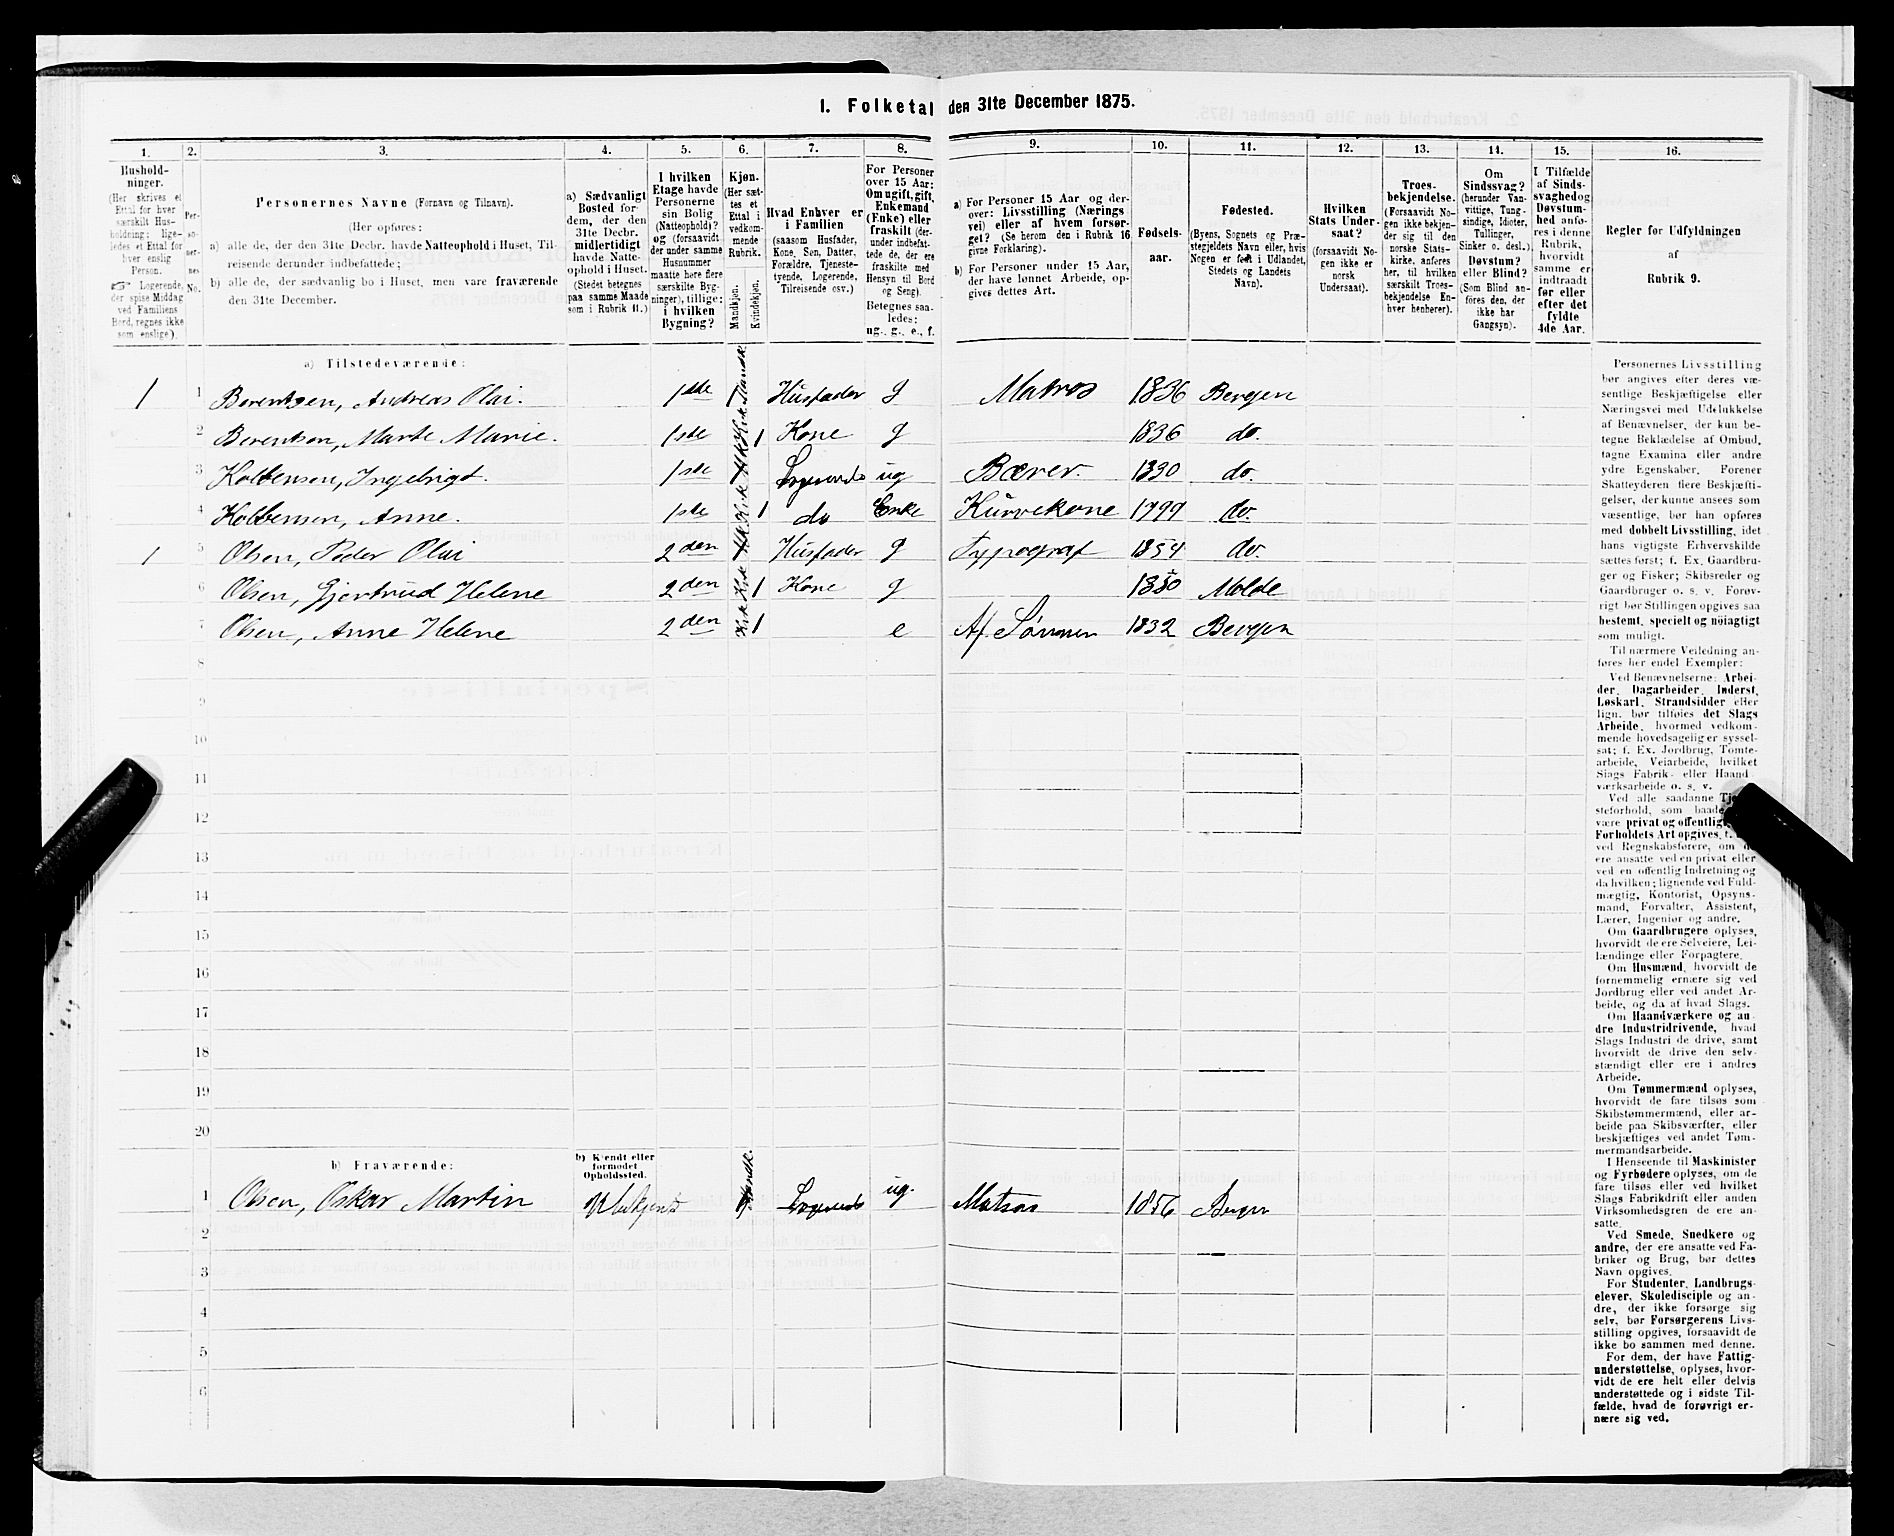 1. Folketal den 31te December 1875.
1. 2. 3. 4. 5. 6. 7. 8. 9. 10. 11. 12. 13. 14. 15. 16.
Husholdninger.
(Her skrives et Ettal for hver særskilt Husholdning; ligeledes et Ettal for hver enslig Person.
☞ Logerende, der spise Middag ved Familiens Bord, regnes ikke som enslige).
Personernes No.
Personernes Navne (Fornavn og Tilnavn).
(Her opføres:
a) alle de, der den 31te Decbr. havde Natteophold i Huset, Tilreisende derunder indbefattede;
b) alle de, der sædvanlig bo i Huset, men vare fraværende den 31te December.
a) Sædvanligt Bosted fordem, der den 31te Decbr. midlertidigt havde Natteophold i Huset. (Stedet betegnes paa samme Maade som i Rubrik 11.)
I hvilken Etage havde Personerne sin Bolig (Natteophold)? og (forsaavidt der under samme Husnummer maatte høre flere særskilte Bygninger), tillige: i hvilken Bygning?
Kjøn. (Her sættes et Ettal i vedkommende Rubrik.
Mandkjøn. Kvindekjøn.
Hvad Enhver er i Familien (saasom Husfader, Kone, Søn, Datter, Forældre, Tjenestetyende, Logerende, Tilreisende osv.)
For Personer over 15 Aar: Om ugift, gift, Enkemand (Enke) eller fraskilt (derunder indbefattede, de, der ere fraskilte med Hensyn til Bord og Seng). Betegnes saaledes: ug., g., e., f.
a) For Personer 15 Aar og derover: Livsstilling (Næringsvei) eller af hvem forsørget? (Se herom den i Rubrik 16 givne Forklaring).
b) For Personer under 15 Aar, der have lønnet Arbeide, opgives dettes Art.
Fødselsaar.
Fødested. (Byens, Sognets og Præstegjeldets Navn eller, hvis Nogen er født i Udlandet, Stedets og Landets Navn).
Hvilken Stats Undersaat? (forsaavidt Nogen ikke er norsk Undersaat).
Troesbekjendelse. (Forsaavidt Nogen ikke bekjender sig til den norske Statskirke, anføres her, til hvilken særskilt Troesbekjendelse Enhver henhører).
Om Sindssvag? (herunder Vanvittige, Tungsindige, Idioter, Tullinger, Sinker o. desl.). Døvstum? eller Blind? (Som Blind anføres den, der ikke har Gangsyn).
I Tilfælde af Sindssvaghed og Døvstumhed anføres i denne Rubrik, hvorvidt samme er indtraadt før eller efter det fyldte 4de Aar.
Regler for Udfyldningen af Rubrik 9.
a) Tilstedeværende:
1 1 Berentsen, Andreas Olai. 1ste 1 Husfader g Matros 1836 Bergen
2 Berentsen, Marte Marie. 1ste 1 Kone g 1836 do.
3 Kolbensen, Ingebrigt. 1ste Logerende ug Bærer. 1830 do.
4 Kolbensen, Anne. 1ste 1 do Enke Kurvekone 1799 do.
1 5 Olsen, Peder Olai 2den Husfader g Typograf 1854 do.
6 Olsen, Gjertrud Helene 2den 1 Kone g 1850 Molde
7 Olsen, Anne Helene 2den 1 e Af Sønnen 1832 Bergen
8
9
10
11
12
13
14
15
16
17
18
19
20
b) Fraværende:
b) Kjendt eller formodet Opholdssted.
1 Olsen, Oskar Martin Ubekjendt Logerende ug. Matros 1856 Bergen
2
3
4
5
6
Personernes Livsstilling
bør angives efter deres væsentlige
Beskjæftigelse eller
Næringsvei med Udelukkelse
af Benævnelser, der kun betegne
Beklædelse af Ombud,
tagne Examina eller andre
ydre Egenskaber. Forener
Skatteyderen flere Beskjæftigelser,
der kunne ansees som
væsentlige, bør han opføres
med dobbelt Livsstilling, idet
hans vigtigste Erhvervskilde
sættes først; f. Ex. Gaardbruger
og Fisker; Skibsreder og
Gaardbruger o. s. v. Forøvrigt
bør Stillingen opgives saa
bestemt, specielt og nöiagtigt
som muligt.
Til nærmere Veiledning anføres
her endel Exempler:
Ved Benævnelserne: Arbeider,
Dagarbeider, Inderst,
Løskarl, Strandsidder eller
lign. bør tilføies det Slags
Arbeide, hvormed vedkommende
hovedsagelig er sysselsat;
f. Ex. Jordbrug, Tomtearbeide,
Veiarbeide, hvilket
Slags Fabrik- eller Haandværksarbeide
o. s. v.
Ved alle saadanne
være privat og offentlig
Forholdets Art opgives,
ved Regnskabsførere, om
ere ansatte ved en privat eller
ved en offentlig Indretning og
da hvilken; lignende ved Fuldmægtig,
Kontorist, Opsynsmand,
Forvalter, Assistent,
Lærer, Ingeniør og andre.
Om Gaardbrugere oplyses,
hvorvidt de ere Selveiere, Leilændinge
eller Forpagtere.
Om Husmænd, hvorvidt de
fornemmelig ernære sig ved
Jordbrug eller ved andet Arbeide,
og da af hvad Slags.
Om Haandværkere og andre
Industridrivende, hvad
Slags Industri de drive, samt
hvorvidt de drive den selvstændigt
eller ere i andres
Arbeide.
Om Tømmermænd oplyses,
hvorvidt de fare tilsøs som
Skibstømmermænd, eller arbeide
paa Skibsværfter, eller
beskjæftiges ved andet Tømmermandsarbeide.
I Henseende til Maskinister
og Fyrbødere oplyses, om de
fare tilsøs eller ved hvilket
Slags Fabrikdrift eller anden
Virksomhedsgren de ere ansatte.
Ved Smede, Snedkere og
andre, der ere ansatte ved Fabriker
og Brug, bør dettes
Navn opgives.
For Studenter, Landbrugselever,
Skoledisciple og andre,
der ikke forsørge sig
selv, bør Forsørgerens Livsstilling
opgives, forsaavidt de
ikke bo sammen med denne.
For dem, der have Fattigunderstøttelse,
oplyses, hvorvidt
de ere helt eller delvis
understøttede og i sidste Tilfælde,
hvad de forøvrigt ernære
sig ved.